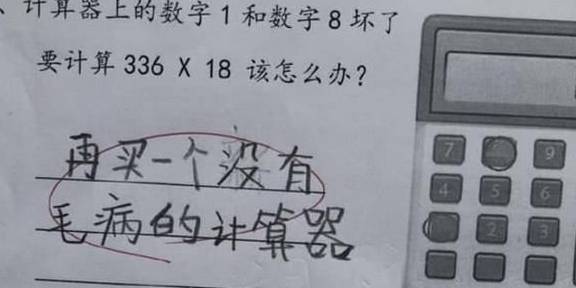 、计算器上的数字1和数字8坏了
要计算336 X 18 该怎么办?
再买一个没有
毛病的计算器
7 9
4 5 6
2 3